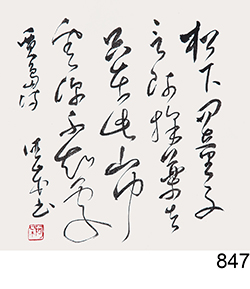 松下問童子
言師採藥去
只在此山中
雲深不知處
賈島詩
書
847